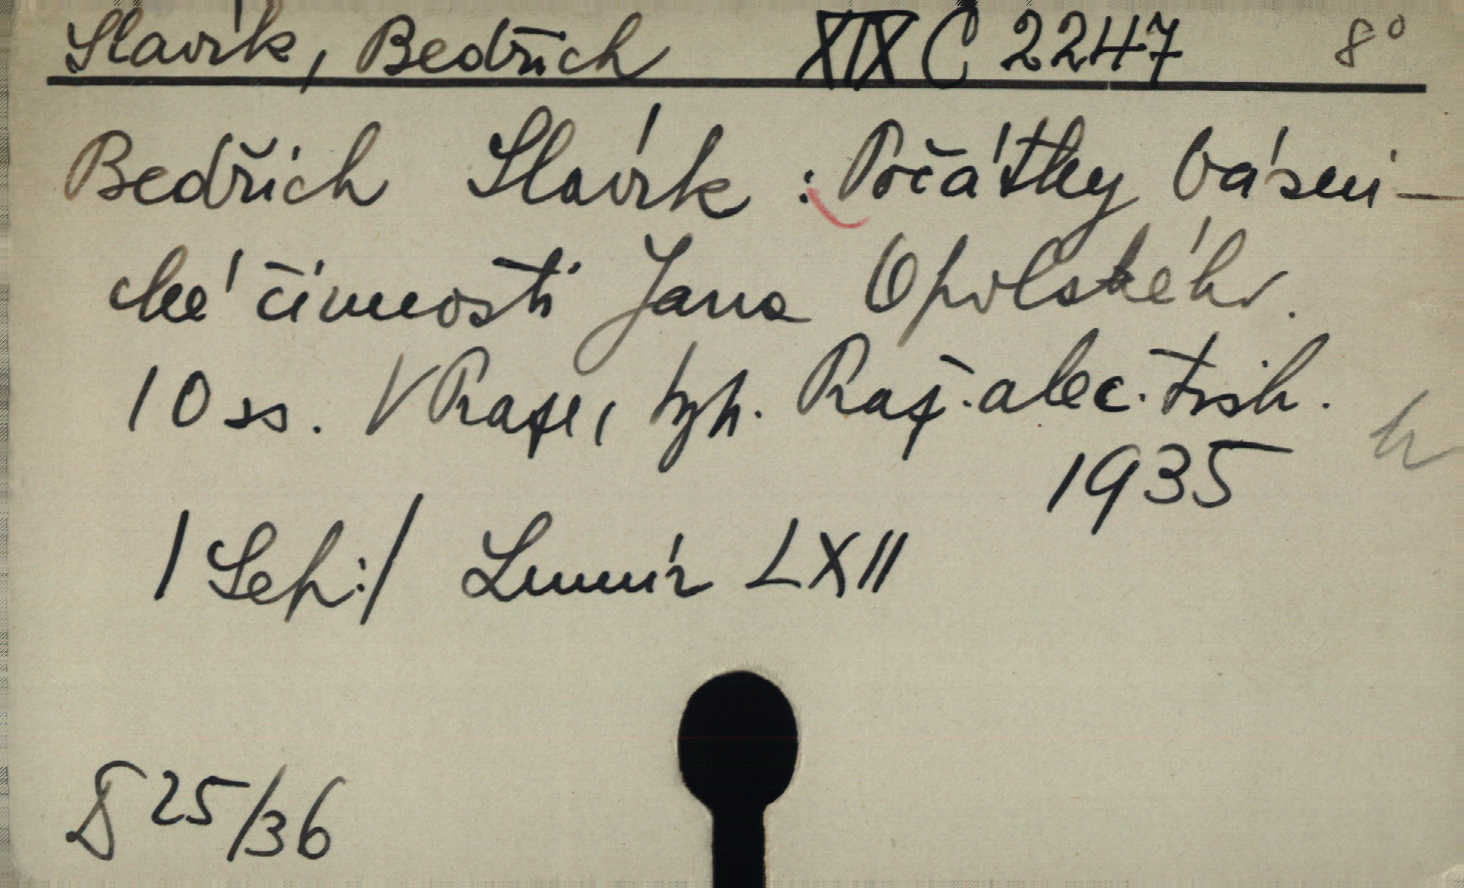 Slavík, Bedřich XIX C 2247 8°
Bedřich Slavík : Počátky básni-
cké činnosti Jana Opolského.
10 ss. V Praze, typ. Praž. alec. tisk.
1935
/Sep:/ Lumír LXII
25/36